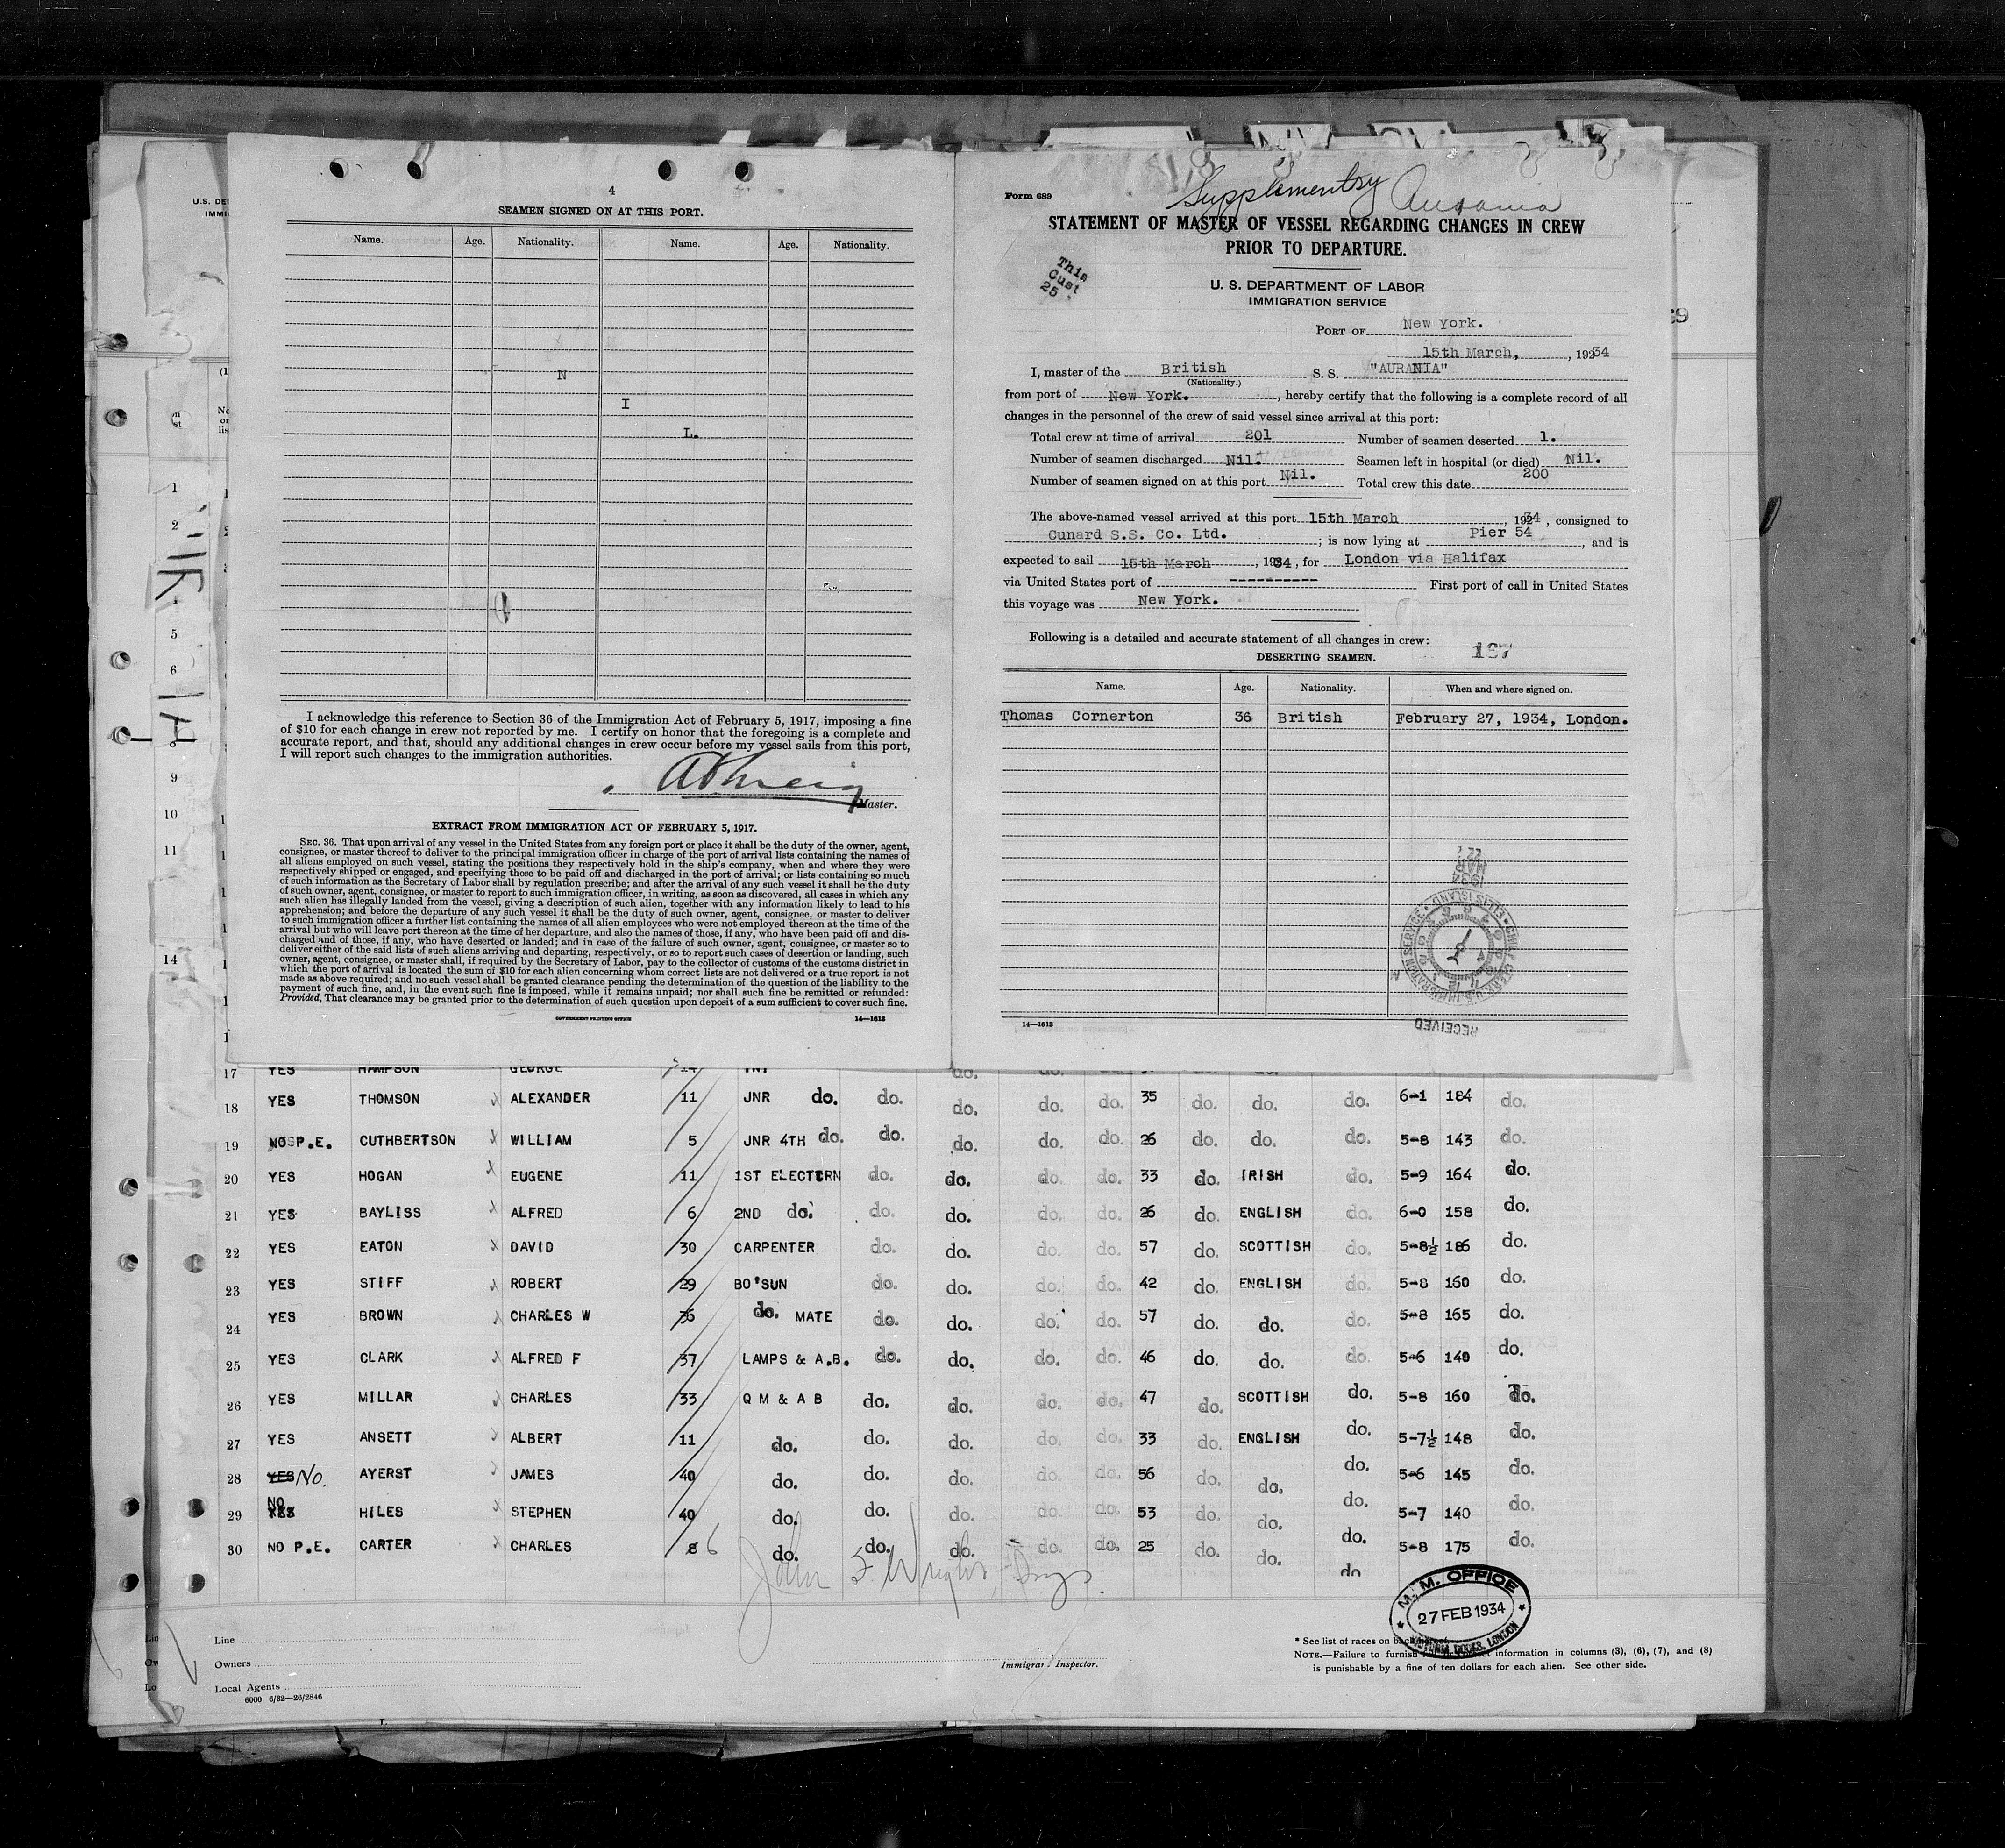 4
SEAMEN SIGNED ON AT THIS PORT.
Name. Age. Nationality. Name. Age. Nationality.
N
I
L.
I acknowledge this reference to Section 36 of the Immigration Act of February 5, 1917, imposing a fine
of $10 for each change in crew not reported by me. I certify on honor that the foregoing is a complete and
accurate report, and that, should any additional changes in crew occur before my vessel sails from this port,
I will report such changes to the immigration authorities.
Master.
EXTRACT FROM IMMIGRATION ACT OF FEBRUARY 5, 1917.
SEC. 36. That upon arrival of any vessel in the United States from any foreign port or place it shall be the duty of the owner, agent,
consignee, or master thereof to deliver to the principal immigration officer in charge of the port of arrival lists containing the names of
all aliens employed on such vessel, stating the positions they respectively hold in the ship's company, when and where they were
respectively shipped or engaged, and specifying those to be paid off and discharged in the port of arrival; or lists containing so much
of such information as the Secretary of Labor shall by regulation prescribe; and after the arrival of any such vessel it shall be the duty
of such owner, agent, consignee, or master to report to such immigration officer, in writing, as soon as discovered, all cases in which any
such alien has illegally landed from the vessel, giving a description of such alien, together with any information likely to lead to his
apprehension; and before the departure of any such vessel it shall be the duty of such owner, agent, consignee, or master to deliver
to such immigration officer a further list containing the names of all alien employees who were not employed thereon at the time of the
arrival but who will leave port thereon at the time of her departure, and also the names of those, if any, who have been paid off and dis-
charged and of those, if any, who have deserted or landed; and in case of the failure of such owner, agent, consignee, or master so to
deliver either of the said lists of such aliens arriving and departing, respectively, or so to report such cases of desertion or landing, such
owner, agent, consignee, or master shall, if required by the Secretary of Labor, pay to the collector of customs of the customs district in
which the port of arrival is located the sum of $10 for each alien concerning whom correct lists are not delivered or a true report is not
made as above required; and no such vessel shall be granted clearance pending the determination of the question of the liability to the
payment of such fine, and, in the event such fine is imposed, while it remains unpaid; nor shall such fine be remitted or refunded:
Provided, That clearance may be granted prior to the determination of such question upon deposit of a sum sufficient to cover such fine.
GOVERNMENT PRINTING OFFICE 14—1613
Supplementry Ausania
Form 689
STATEMENT OF MASTER OF VESSEL REGARDING CHANGES IN CREW
PRIOR TO DEPARTURE.
This
Cust
25
U. S. DEPARTMENT OF LABOR
IMMIGRATION SERVICE
PORT OF New York.
15th March, , 1934
I, master of the British S. S. "AURANIA"
(Nationality.)
from port of New York. , hereby certify that the following is a complete record of all
changes in the personnel of the crew of said vessel since arrival at this port:
Total crew at time of arrival 201 Number of seamen deserted 1.
Number of seamen discharged Nil. Seamen left in hospital (or died) Nil.
Number of seamen signed on at this port Nil. Total crew this date 200
The above-named vessel arrived at this port 15th March , 1934 , consigned to
Cunard S.S. Co. Ltd. ; is now lying at Pier 54 , and is
expected to sail 15th March , 1934 , for London via Halifax
via United States port of ---------- First port of call in United States
this voyage was New York.
Following is a detailed and accurate statement of all changes in crew:
DESERTING SEAMEN. 187
Name. Age. Nationality. When and where signed on.
Thomas Cornerton 36 British February 27, 1934, London.
1934
MAR
22
CHIEF CLERK U.S. IMMIGRATION SERVICE • ELLIS ISLAND
RECEIVED
14—1613
17 YES HAMPSON GEORGE 14
18 YES THOMSON ALEXANDER 11 JNR do. do. do. do. do. 35 do. do. do. 6-1 184 do.
19 NO P.E. CUTHBERTSON WILLIAM 5 JNR 4TH do. do. do. do. do. 26 do. do. do. 5-8 143 do.
20 YES HOGAN EUGENE 11 1ST ELECTCRN do. do. do. do. 33 do. IRISH do. 5-9 164 do.
21 YES BAYLISS ALFRED 6 2ND do. do. do. do. do. 26 do. ENGLISH do. 6-0 158 do.
22 YES EATON DAVID 30 CARPENTER do. do. do. do. 57 do. SCOTTISH do. 5-8½ 186 do.
23 YES STIFF ROBERT 29 BO'SUN do. do. do. do. 42 do. ENGLISH do. 5-8 160 do.
24 YES BROWN CHARLES W 36 do. MATE do. do. do. do. 57 do. do. do. 5-8 165 do.
25 YES CLARK ALFRED F 37 LAMPS & A.B. do. do. do. do. 46 do. do. do. 5-6 140 do.
26 YES MILLAR CHARLES 33 Q M & A B do. do. do. do. 47 do. SCOTTISH do. 5-8 160 do.
27 YES ANSETT ALBERT 11 do. do. do. do. do. 33 do. ENGLISH do. 5-7½ 148 do.
28 YES No. AYERST JAMES 40 do. do. do. do. do. 56 do. do. do. 5-6 145 do.
29 NO YES HILES STEPHEN 40 do. do. do. do. do. 53 do. do. do. 5-7 140 do.
30 NO P.E. CARTER CHARLES 8 6 do. do. do. do. do. 25 do. do. do. 5-8 175 do.
do
M. M. OFFICE
27 FEB 1934
VICTORIA DOCKS, LONDON
Line
Owners
Local Agents
6000 6/32—26/2846
Immigrant Inspector.
* See list of races on back
NOTE.—Failure to furnish information in columns (3), (6), (7), and (8)
is punishable by a fine of ten dollars for each alien. See other side.